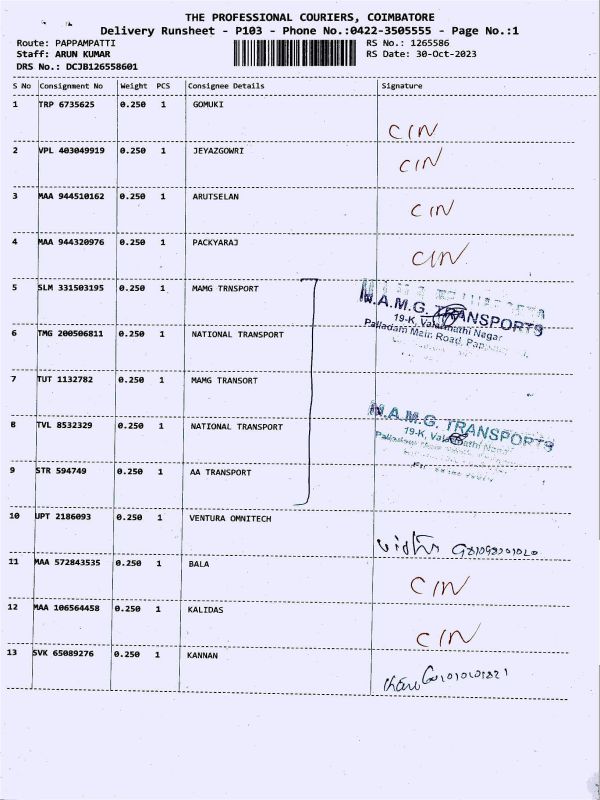 THE PROFESSIONAL COURIERS, COIMBATORE
Delivery Runsheet - P103 - Phone No.:0422-3505555 - Page No.:1
Route: PAPPAMPATTI RS No.: 1265586
Staff: ARUN KUMAR RS Date: 30-Oct-2023
DRS No.: DCJB126558601
S No Consignment No Weight PCS Consignee Details Signature
1 TRP 6735625 0.250 1 GOMUKI
CIN
2 VPL 403049919 0.250 1 JEYAZGOWRI
CIN
3 MAA 944510162 0.250 1 ARUTSELAN
CIN
4 MAA 944320976 0.250 1 PACKYARAJ
CIN
5 SLM 331503195 0.250 1 MAMG TRNSPORT
N.A.M.G. TRANSPORTS
19-K, Valarmathi Nagar
Palladam Main Road,
6 TMG 200506811 0.250 1 NATIONAL TRANSPORT
7 TUT 1132782 0.250 1 MAMG TRANSORT
8 TVL 8532329 0.250 1 NATIONAL TRANSPORT
N.A.M.G. TRANSPORTS
19-K, Valarmathi Nagar
9 STR 594749 0.250 1 AA TRANSPORT
10 UPT 2186093 0.250 1 VENTURA OMNITECH
11 MAA 572843535 0.250 1 BALA
CIN
12 MAA 106564458 0.250 1 KALIDAS
CIN
13 SVK 65089276 0.250 1 KANNAN